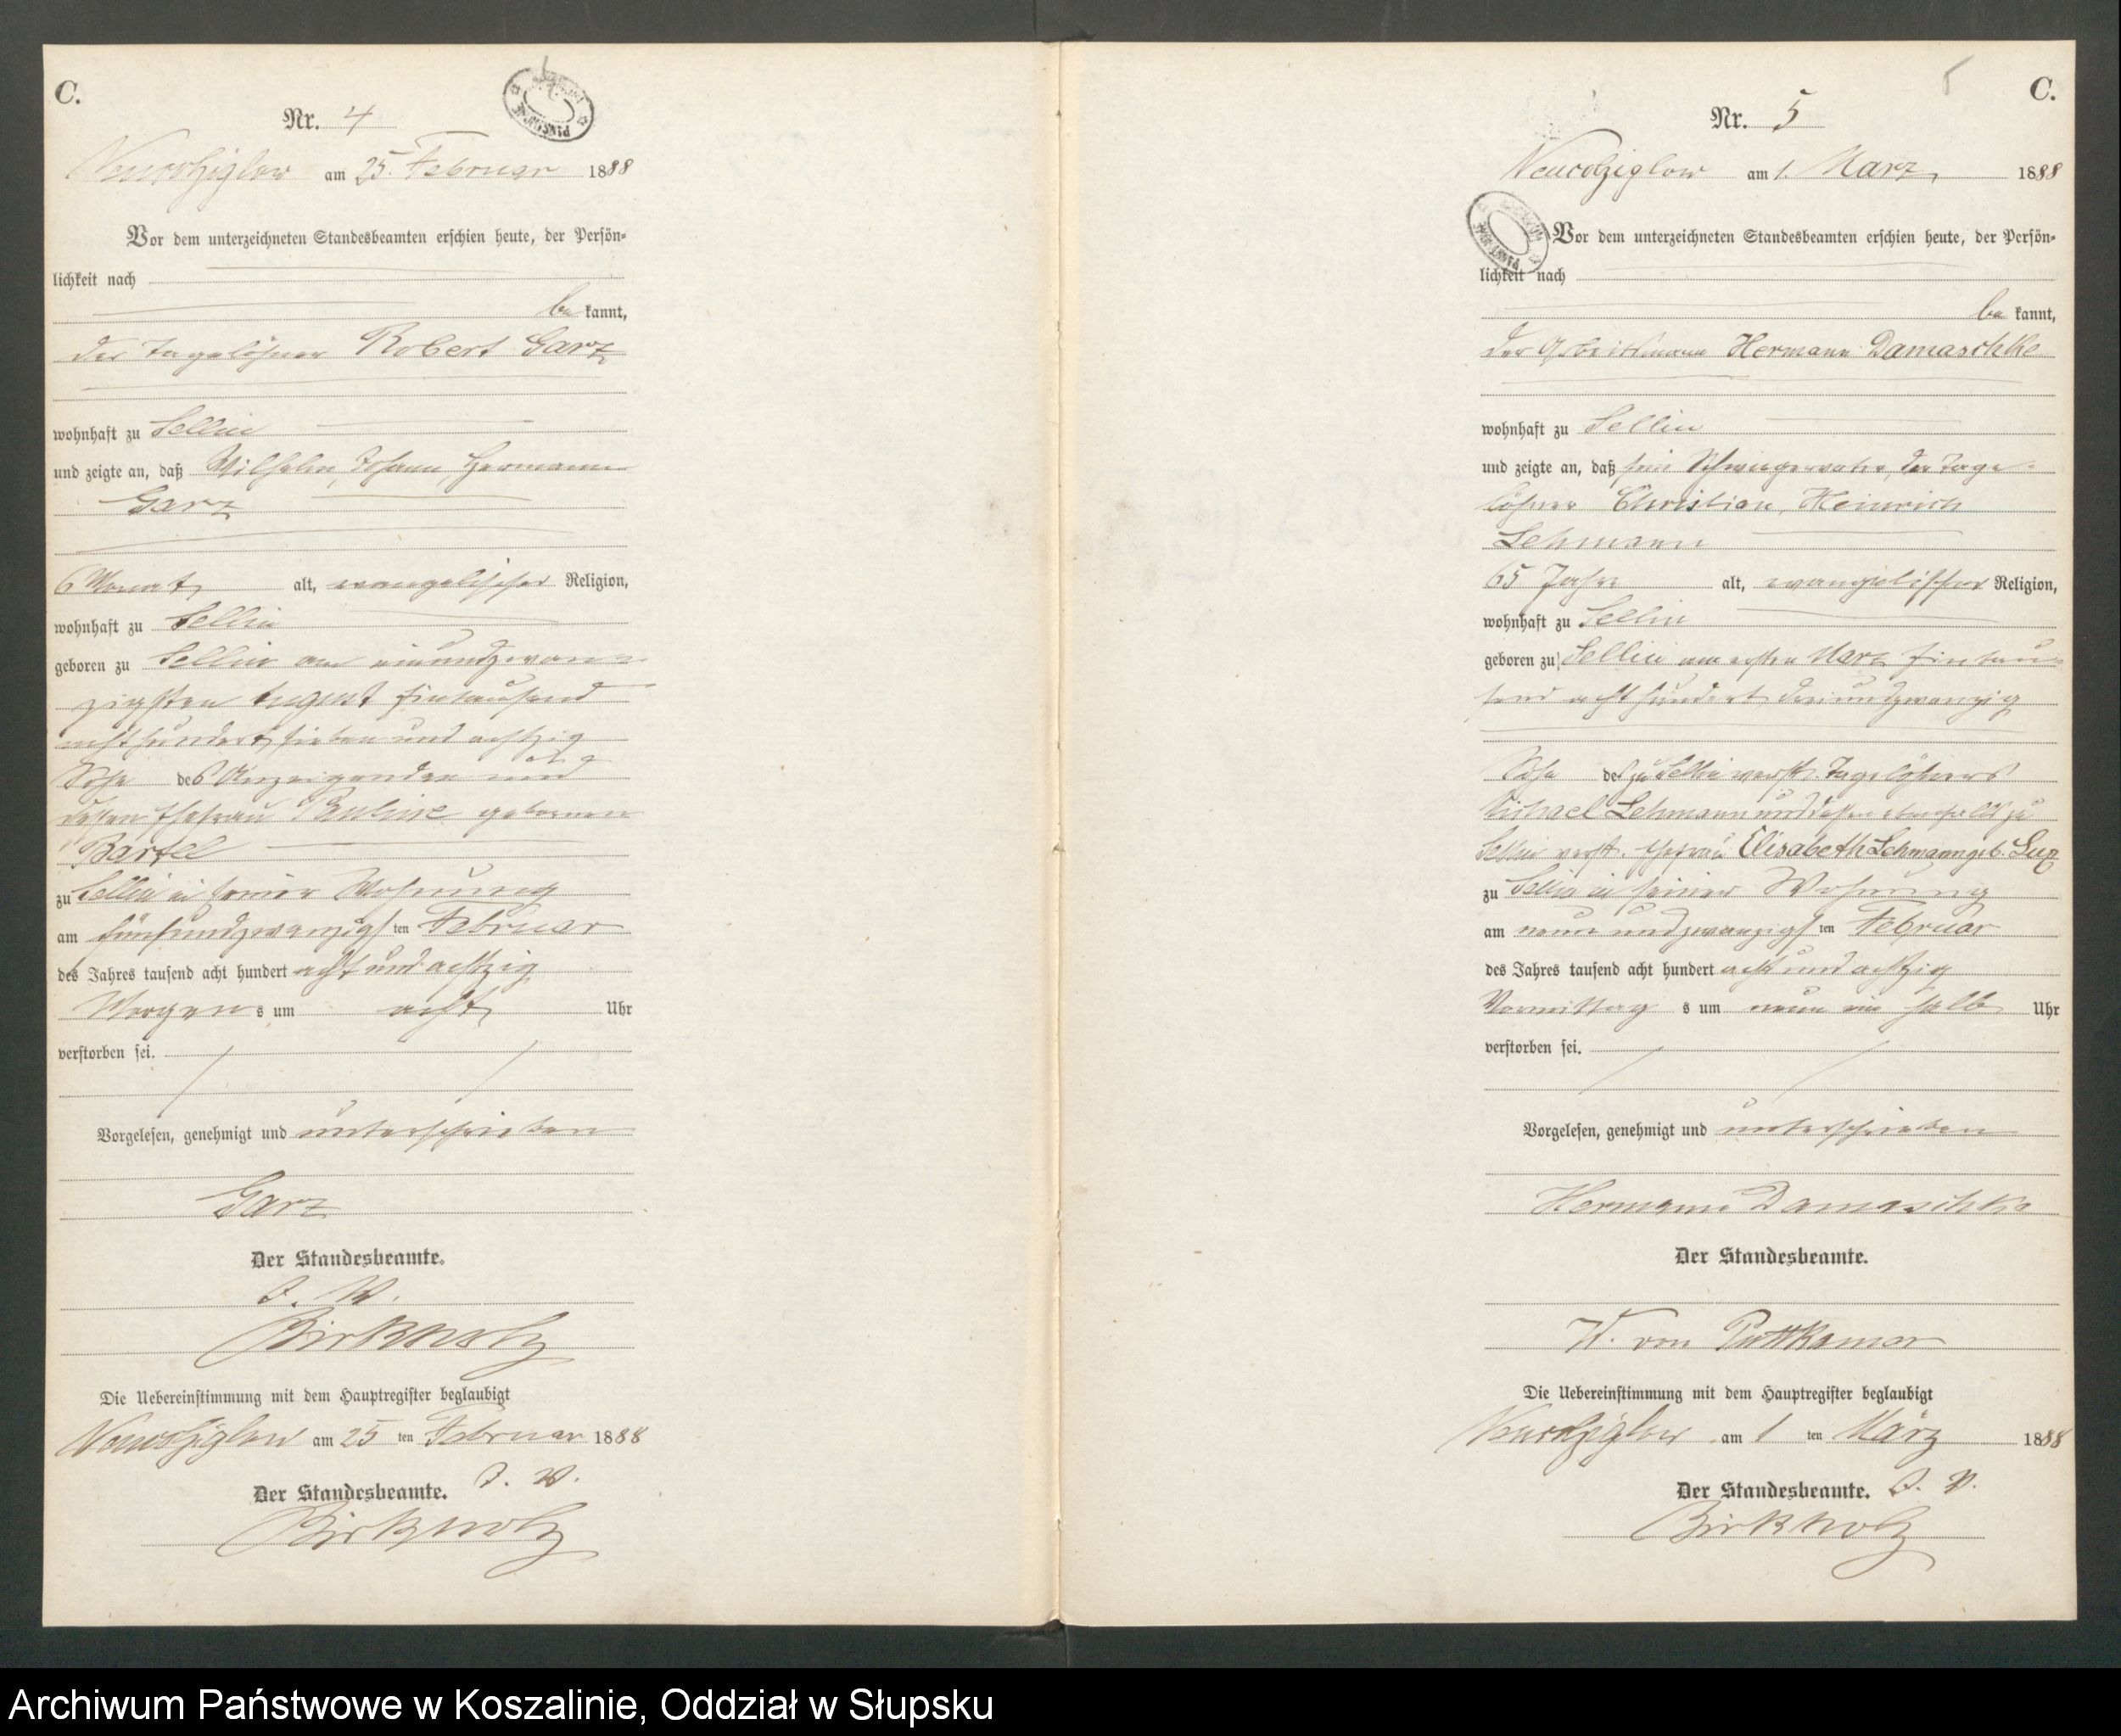 C.
Nr. 4
am 25. Februar 1888
Vor dem unterzeichneten Standesbeamten erschien heute, der Persön-
lichkeit nach
be kannt,
der Tagelöhner Robert Garz
wohnhaft zu Sellin
und zeigte an, daß Wilhelm, Johann, Hermann
Garz
6 Monat, alt, evangelischer Religion,
wohnhaft zu Sellin
geboren zu Sellin am einundzwan-
zigsten August Eintausend
acht hundert sieben und achtzig
Sohn des Anzeigenden und
dessen Ehefrau Pauline geborenen
Bartel
zu Sellin in seiner Wohnung
am fünfundzwanzigsten Februar
des Jahres tausend acht hundert acht und achtzig
Morgens um acht Uhr
verstorben sei.
Vorgelesen, genehmigt und unterschrieben
Garz
Der Standesbeamte.
J. V.
Birkholz
Die Uebereinstimmung mit dem Hauptregister beglaubigt
am 25 ten Februar 1888
Der Standesbeamte. J. V.
Birkholz
5
C.
Nr. 5
am 1. März 1888
Vor dem unterzeichneten Standesbeamten erschien heute, der Persön-
lichkeit nach
be kannt,
der Arbeitsmann Hermann Damaschke
wohnhaft zu Sellin
und zeigte an, daß sein Schwiegervater, der Tage-
löhner Christian, Heinrich
Lehmann
65 Jahr alt, evangelischer Religion,
wohnhaft zu Sellin
geboren zu Sellin am ersten März Eintau-
send acht hundert dreiundzwanzig
Sohn des zu Sellin verst. Tagelöhners
Michael Lehmann und dessen ebenfalls zu
Sellin verst. Ehefrau Elisabeth Lehmann geb.
zu Sellin in seiner Wohnung
am neun undzwanzigsten Februar
des Jahres tausend acht hundert acht und achtzig
Vormittags um neun ein halb Uhr
verstorben sei.
Vorgelesen, genehmigt und unterschrieben
Hermann Damaschke
Der Standesbeamte.
W. von Puttkamer
Die Uebereinstimmung mit dem Hauptregister beglaubigt
am 1 ten März 1888
Der Standesbeamte. J. V.
Birkholz
Archiwum Państwowe w Koszalinie, Oddział w Słupsku